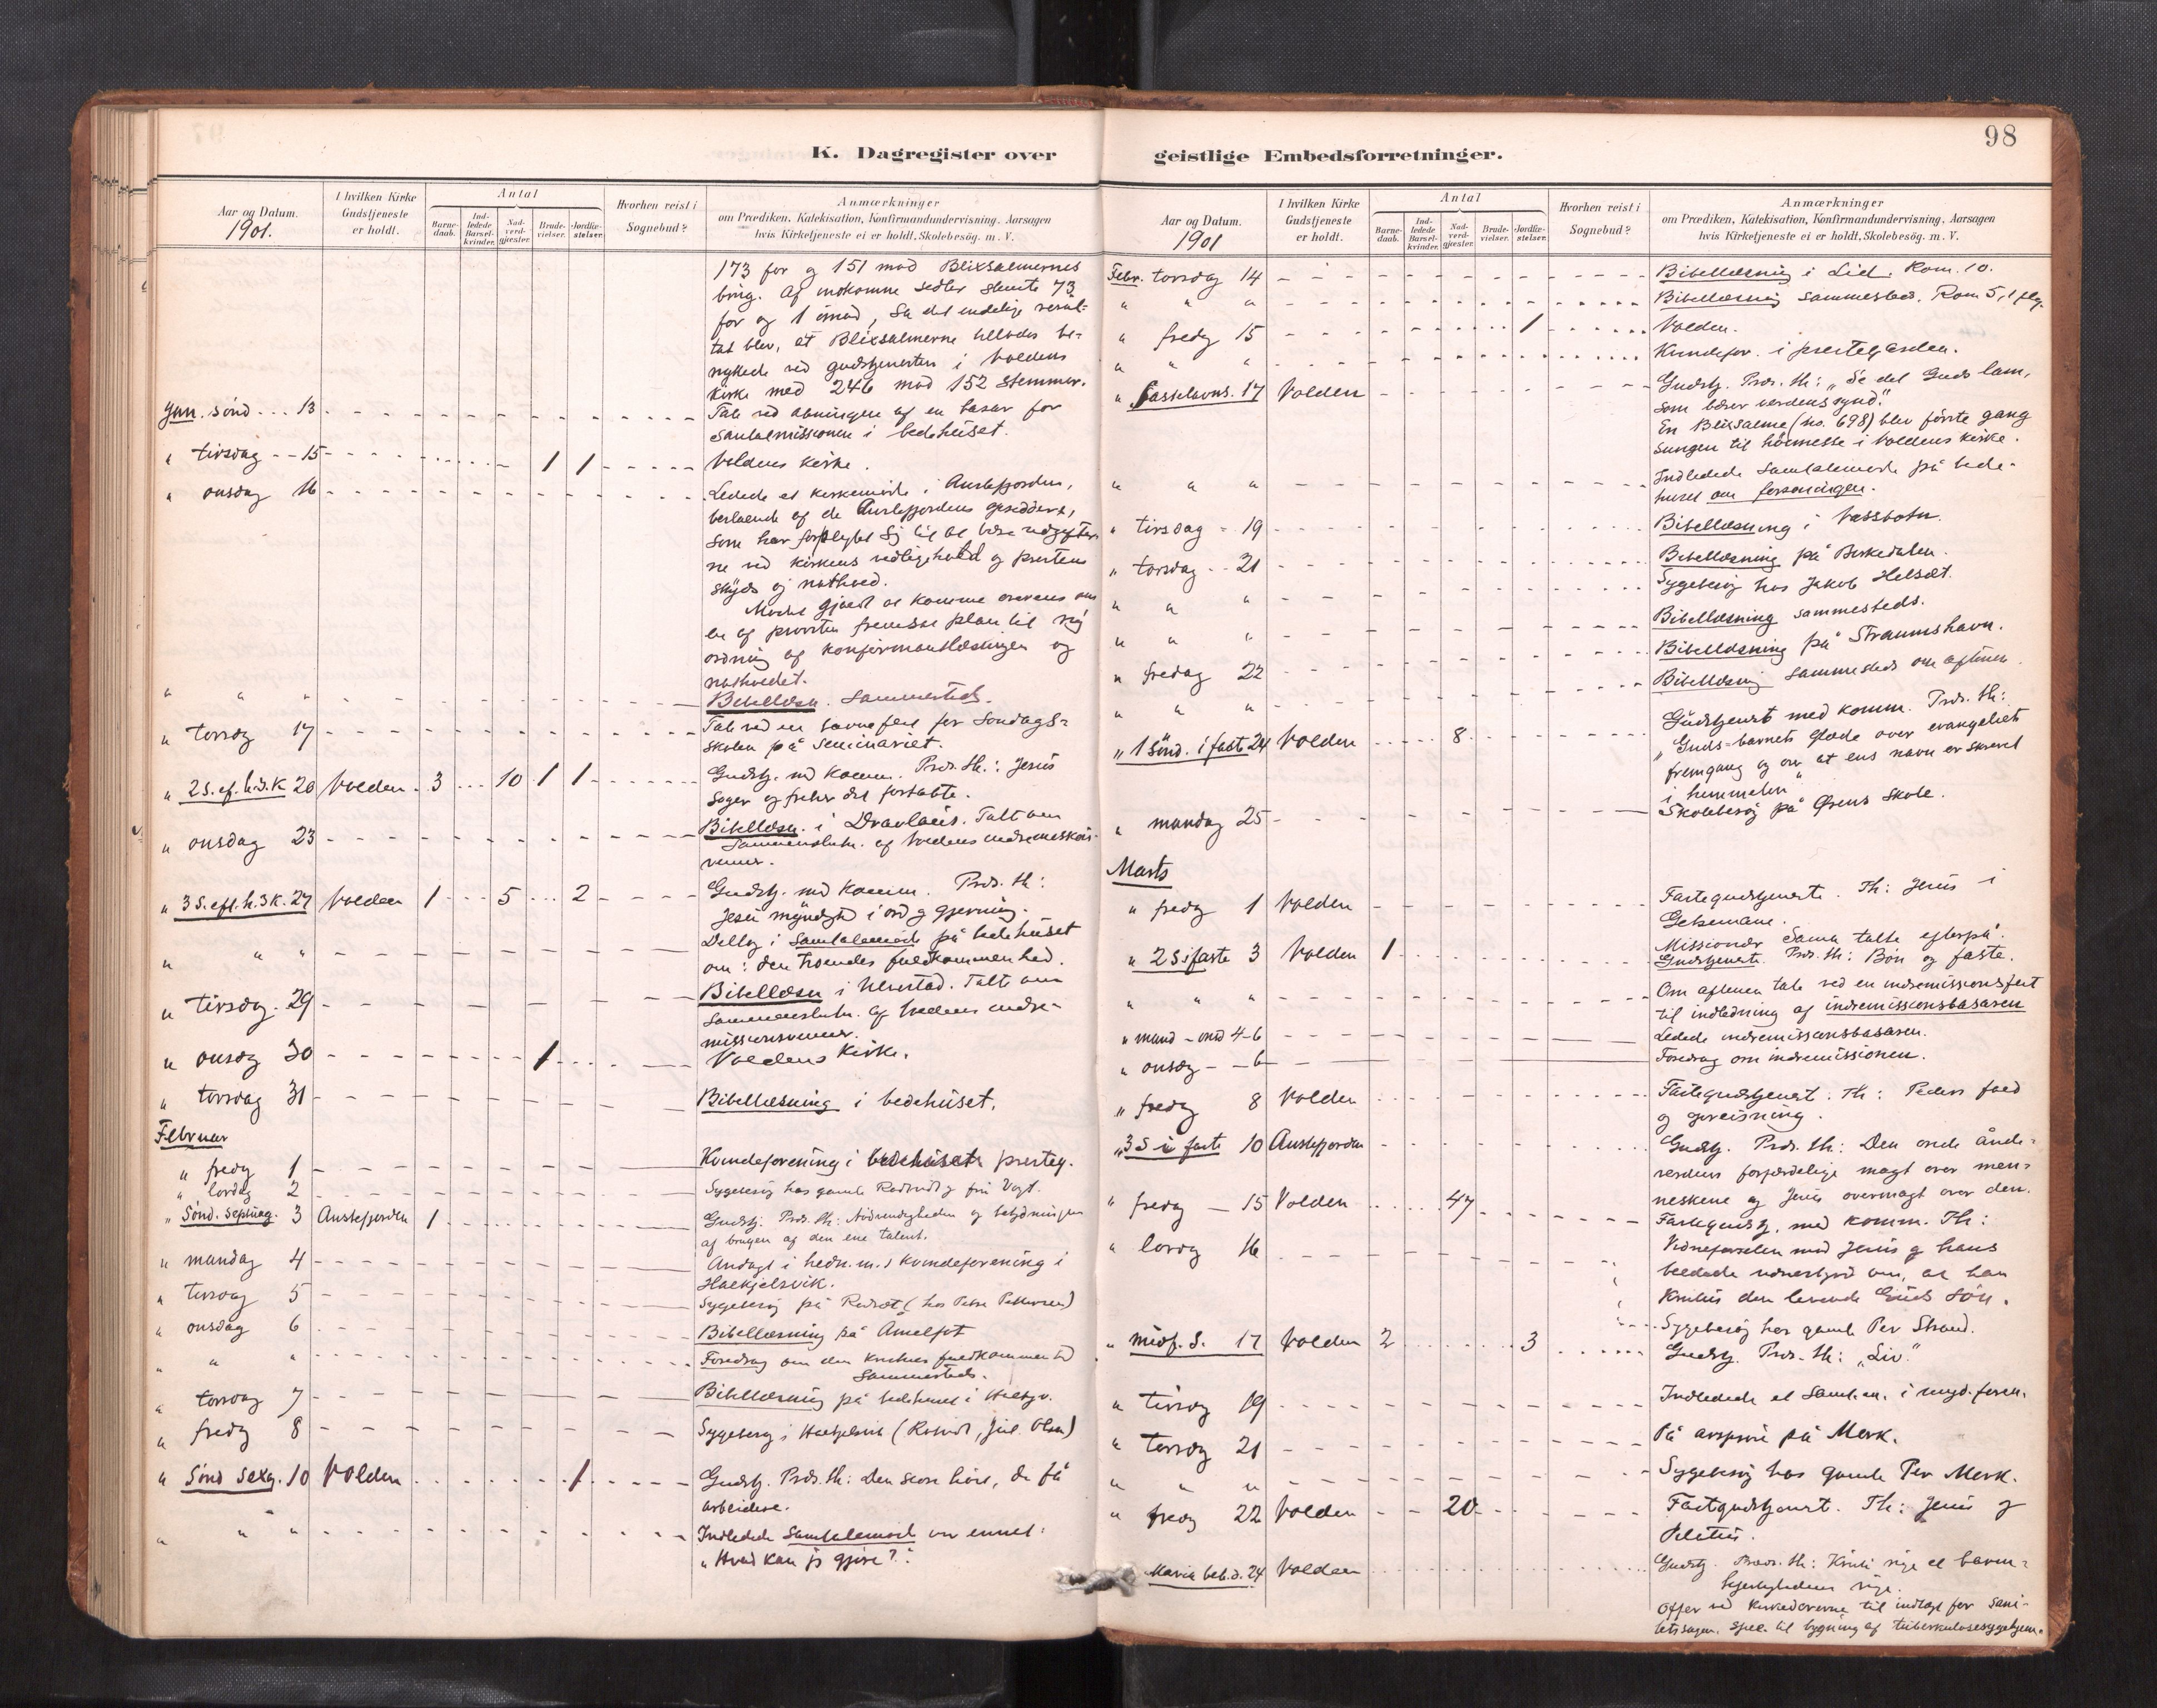 98
K. Dagregister over
geistlige Embedsforretninger.
Aar og Datum.
1901.
I hvilken Kirke Gudstjeneste er holdt.
Antal
Barne-daab.
Ind-ledede Barsel-kvinder.
Nad-verd-gjæster.
Brude-vielser.
Jordfæ-stelser.
Hvorhen reist i Sognebud?
Anmærkninger
om Prædiken, Katekisation, Konfirmandundervisning, Aarsagen
hvis Kirketjeneste ei er holdt, Skolebesög. m. V.
173 for og 151 mod Blixsalmernes
brug. Af indkomne sedler stemte 73
for og 1 imod, så det endelige resul-
tat blev, at Blixsalmerne tillodes be-
nyttede ved gudstjenesten i Voldens
kirke med 246 mod 152 stemmer.
Jan. sönd 13 Tale ved åbningen af en basar for
Santalmissionen i bedehuset.
" tirsdag 15 1 1 Voldens kirke.
" onsdag 16 Ledede et kirkemöde i Austefjorden,
bestaaende af de Austefjordens opsiddere,
som har forpligtet sig til at bære udgifter-
ne ved kirkens vedligehold og prestens
skyds og nathold.
Mödet gjaldt at komme overens om
en af presten fremsat plan til ny
ordning af konfirmantlæsningen og
natholdet.
" " " Bibellæsn. sammesteds.
" torsdag 17 Tale ved en fest for Söndags-
skolen på Seminariet.
" 2 S. ef. h.3.K 20 Volden 3 10 1 1 Gudstj. md komm. Præd. th.: Jesus
söger og frelser det fortabte.
" onsdag 23 Bibellæsn. i Dravlaus. Talt om
Sammenslutn. af Voldens indremissions-
venner.
" 3 S. eft. h.3K. 27 Volden 1 5 2 Gudstj. md komm. Præd. th:
Jesu myndighed i ord og gjerning.
" " " Deltog i Samtalemöde på bedehuset
om: den troendes fuldkommenhed.
" tirsdag 29 Bibellæsn i Ulvestad. Talt om
Sammenslutn. af Voldens indre-
missionsvenner.
" onsdag 30 1 Voldens kirke.
" torsdag 31 Bibellæsning i bedehuset.
Februar
" fredag 1 Kvindeforening i presteg.
" lördag 2 Sygebesög hos gamle
" Sönd. Septuag. 3 Austefjorden 1 Gudstj. Præd. th: Nödvendigheden og betydningen
af brugen af den ene talent.
" mandag 4 Andagt i hedn. m.s kvindeforening i
Halkjelsvik.
" tirsdag 5 Sygebesög på Rödset (hos Peter Pettersen)
" onsdag 6 Bibellæsning på Amelfot
" " " Foredrag om den kristnes fuldkommenhed
Sammesteds.
" torsdag 7 Bibellæsning på bedehuset i
" fredag 8 Sygebesög i Halkjelsvik
" Sönd Sexg. 10 Volden 1 Gudstj. Præd. th: Den store höst, de få
arbeidere.
" " " Indledede Samtalemöde over emnet:
"Hvad kan jeg gjöre?".
Aar og Datum.
1901
I hvilken Kirke Gudstjeneste er holdt.
Antal
Barne-daab.
Ind-ledede Barsel-kvinder.
Nad-verd-gjæster.
Brude-vielser.
Jordfæ-stelser.
Hvorhen reist i Sognebud?
Anmærkninger
om Prædiken, Katekisation, Konfirmandundervisning, Aarsagen
hvis Kirketjeneste ei er holdt, Skolebesög. m. V.
Febr. torsdag 14 Bibellæsning i Lid. Rom. 10.
" " " Bibellæsning sammesteds. Rom 5, 1 flg.
" fredag 15 1 Volden.
" " " Kvindefor. i prestegarden.
" Fastelavns. 17 Volden Gudstj. Præd. th: "Se det Guds lam,
som bærer verdens synd."
En Blixsalme (no. 698) blev förste gang
sungen til höimesse i Voldens kirke.
" " " Indledede Samtalemöde på bede-
huset om forsoningen.
" tirsdag 19 Bibellæsning i Vassbotn.
" torsdag 21 Bibellæsning på Birkedalen.
" " " Sygebesög hos Jakob Helset.
" " " Bibellæsning sammesteds.
" fredag 22 Bibellæsning på Straumshavn.
" " " Bibellæsning sammesteds om aftenen.
" 1 Sönd. i faste 24 Volden 8 Gudstjenst med komm. Præd. th:
"Guds-barnets glæde over evangeliets
fremgang og over at ens navn er skrevet
i himmelen"
" mandag 25 Skolebesög på Örens skole.
Marts
" fredag 1 Volden Fastegudstjeneste. Th: Jesus i
Getsemane.
Missionær talte efterpå.
" 2 S i faste 3 Volden 1 Gudstjenest. Præd. th: Bön og faste.
" " " Om aftenen tale ved en indremissionsfest
til indledning af indremissionsbasaren
" mand - onsd 4-6 Ledede indremissionsbasaren.
" onsdag 6 Foredrag om indremissionen.
" fredag 8 Volden Fastegudstjenest. Th: Peders fald
og opreisning.
" 3 S i faste 10 Austefjorden Gudstj. Præd. th: Den onde ånde-
verdens forfærdelige magt over men-
neskene og Jesu overmagt over den.
" fredag 15 Volden 47 Fastegudstj. med komm. Th:
Vidneförselen mod Jesus og hans
vidnesbyrd om, at han
Kristus den levende Guds sön.
" lördag 16 Sygebesög hos gamle Per Strand.
" midf. S. 17 Volden 2 3 Gudstj. Præd. th: "Liv".
" tirsdag 19 Indledede et Samtalem. i ungd. foren.
" torsdag 21 På på Merk.
" " " Sygebesög hos gamle Per Merk.
" fredag 22 Volden 20 Fastgudstjenst. Th: Jesus og
Pilatus.
Maria beb.d. 24 Volden Gudstj. Præd. th: Kristi rige et barm-
hjertighedens rige.
Offer ved kirkedörene til indtægt for Sani-
tetssagen. Spec. til bygning af tuberkulosesygehjem.